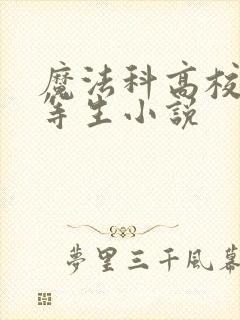 魔法科高校
等生小說
夢里三千風幕